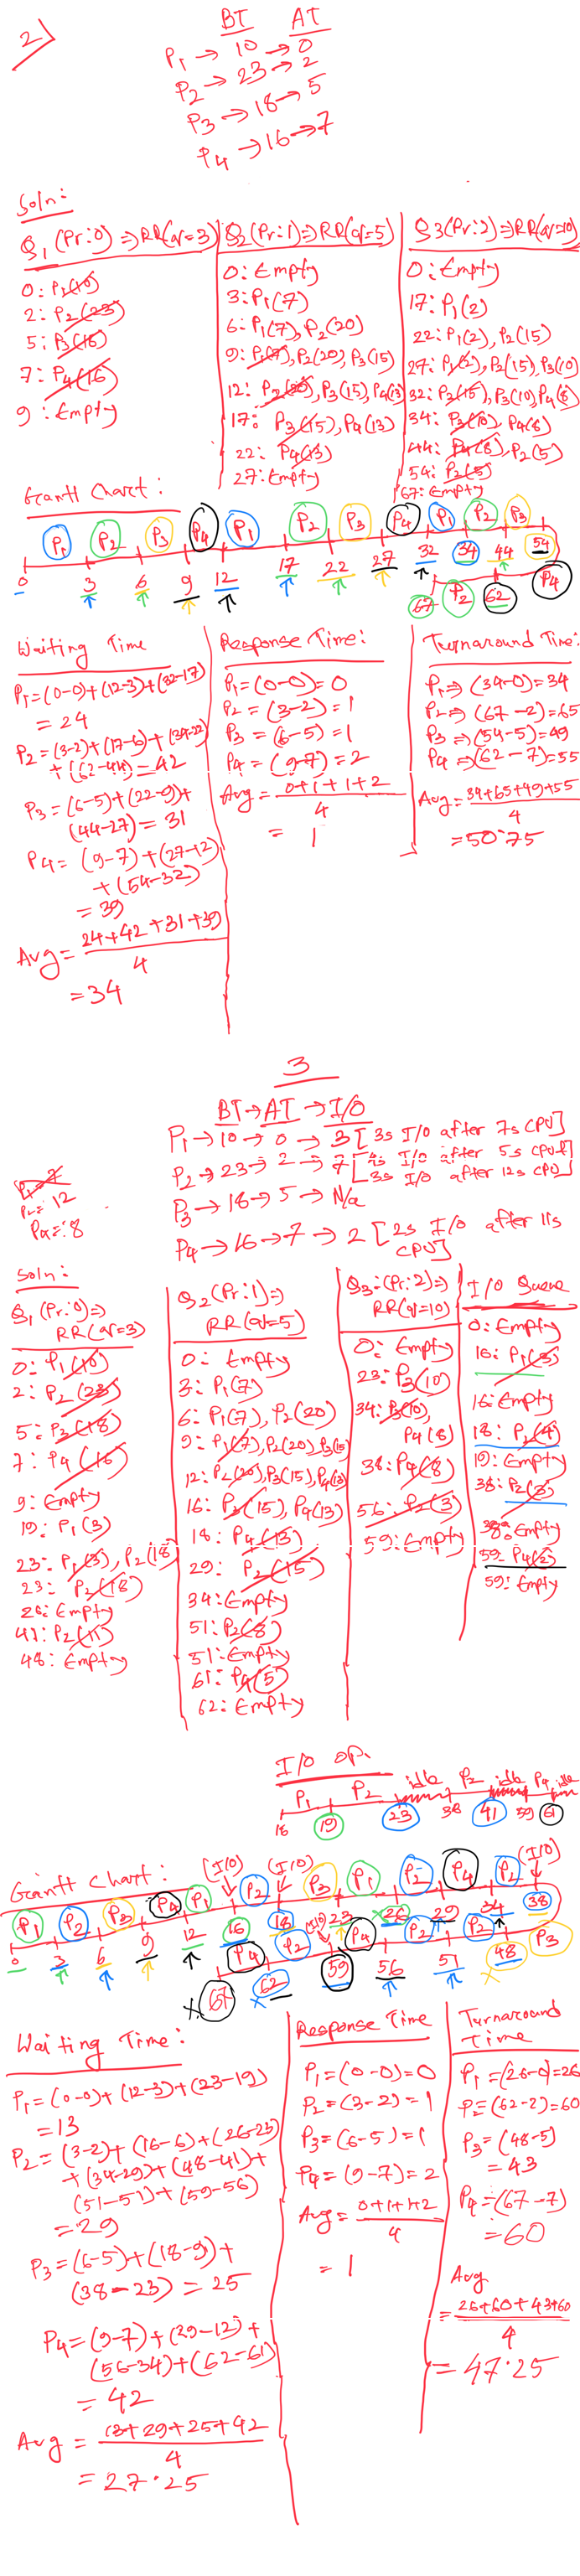 2)
BT AT
P1 → 10 → 0
P2 → 23 → 2
P3 → 18 → 5
P4 → 16 → 7
Soln:
Q1 (Pr:0) ⇒ RR(q=3)
0: P1(10)
2: P2(23)
5: P3(18)
7: P4(16)
9: Empty
Q2 (Pr:1) ⇒ RR(q=5)
0: Empty
3: P1(7)
6: P1(7), P2(20)
9: P1(7), P2(20), P3(15)
12: P2(20), P3(15), P4(13)
17: P3(15), P4(13)
22: P4(13)
27: Empty
Q3 (Pr:2) ⇒ RR(q=10)
0: Empty
17: P1(2)
22: P1(2), P2(15)
27: P1(2), P2(15), P3(10)
32: P2(15), P3(10), P4(8)
34: P3(10), P4(8)
44: P4(8), P2(5)
54: P2(5)
67: Empty
Gantt Chart:
P1 P2 P3 P4 P1 P2 P3 P4 P1 P2 P3
0 3 6 9 12 17 22 27 32 34 44 54
67 P2 62 P4
Waiting Time
P1 = (0-0)+(12-3)+(32-17)
= 24
P2 = (3-2)+(17-6)+(34-22)
+(62-44) = 42
P3 = (6-5)+(22-9)+
(44-27) = 31
P4 = (9-7)+(27-12)
+(54-32)
= 39
Avg = 24+42+31+39
4
= 34
Response Time:
P1 = (0-0) = 0
P2 = (3-2) = 1
P3 = (6-5) = 1
P4 = (9-7) = 2
Avg = 0+1+1+2
4
= 1
Turnaround Time:
P1 ⇒ (34-0) = 34
P2 ⇒ (67-2) = 65
P3 ⇒ (54-5) = 49
P4 ⇒ (62-7) = 55
Avg = 34+65+49+55
4
= 50.75
3
BT → AT → I/O
P1 → 10 → 0 → 3 [3s I/O after 7s CPU]
P2 → 23 → 2 → 7 [4s I/O after 5s CPU &
3s I/O after 12s CPU]
P3 → 18 → 5 → N/a
P4 → 16 → 7 → 2 [2s I/O after 11s
CPU]
P2 = 12
P4 = 8
Soln:
Q1 (Pr:0) ⇒
RR(q=3)
0: P1(10)
2: P2(23)
5: P3(18)
7: P4(16)
9: Empty
19: P1(3)
23: P1(3), P2(18)
23: P2(18)
26: Empty
41: P2(11)
48: Empty
Q2 (Pr:1) ⇒
RR(q=5)
0: Empty
3: P1(7)
6: P1(7), P2(20)
9: P1(7), P2(20), P3(15)
12: P2(20), P3(15), P4(13)
16: P3(15), P4(13)
18: P4(13)
29: P2(15)
34: Empty
51: P2(8)
51: Empty
61: P4(5)
62: Empty
Q3: (Pr:2) ⇒
RR(q=10)
0: Empty
23: P3(10)
34: P3(10),
P4(8)
38: P4(8)
56: P2(3)
59: Empty
I/O Queue
0: Empty
16: P1(3)
16: Empty
18: P2(4)
19: Empty
38: P2(3)
38: Empty
59: P4(2)
59: Empty
I/O Op.
P1 P2 idle P2 idle P4 idle
16 19 23 38 41 59 61
Gantt Chart:
(I/O) (I/O) (I/O)
P1 P2 P3 P4 P1 P2 P3 P1 P2 P4 P2
0 3 6 9 12 16 18 23 26 29 34 38
P4 P2 (I/O) P4 P2 P2 P3
67 62 59 56 51 48
Waiting Time:
P1 = (0-0)+(12-3)+(23-19)
= 13
P2 = (3-2)+(16-6)+(26-23)
+(34-29)+(48-41)+
(51-51)+(59-56)
= 29
P3 = (6-5)+(18-9)+
(38-23) = 25
P4 = (9-7)+(29-12)+
(56-34)+(62-61)
= 42
Avg = 13+29+25+42
4
= 27.25
Response Time
P1 = (0-0) = 0
P2 = (3-2) = 1
P3 = (6-5) = 1
P4 = (9-7) = 2
Avg = 0+1+1+2
4
= 1
Turnaround
Time
P1 = (26-0) = 26
P2 = (62-2) = 60
P3 = (48-5)
= 43
P4 = (67-7)
= 60
Avg
= 26+60+43+60
4
= 47.25